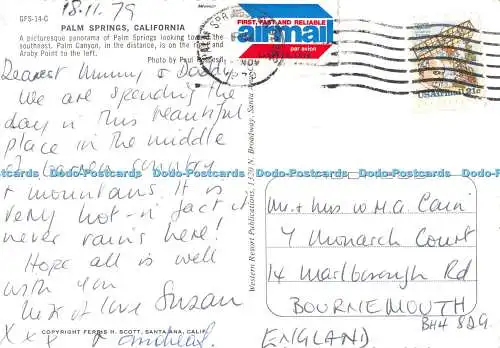 18.11.79
GFS-14-C
PALM SPRINGS, CALIFORNIA
A picturesque panorama of Palm Springs looking toward the
southeast. Palm Canyon, in the distance, is on the right and
Araby Point to the left.
Photo by Paul
Dearest Mummy & Daddy
We are spending the
day in this beautiful
place in the middle
of barren country
+ mountains. It is
very hot - in fact it
never rains here!
Hope all is well
with you
Much love Susan
X X X & Andrea.
COPYRIGHT FERRIS H. SCOTT, SANTA ANA, CALIF.
Western Resort Publications, 1129 N. Broadway, Santa Ana
FIRST, FAST AND RELIABLE
airmail
par avion
PALM SPRINGS
NOV
USAirmail 21c
Mr & Mrs W.H.A. Cain
7 Monarch Court
14 Marlborough Rd
BOURNEMOUTH
BH4 8DG
ENGLAND
Dodo-Postcards Dodo-Postcards Dodo-Postcards Dodo-Postcards Dodo-Postcards